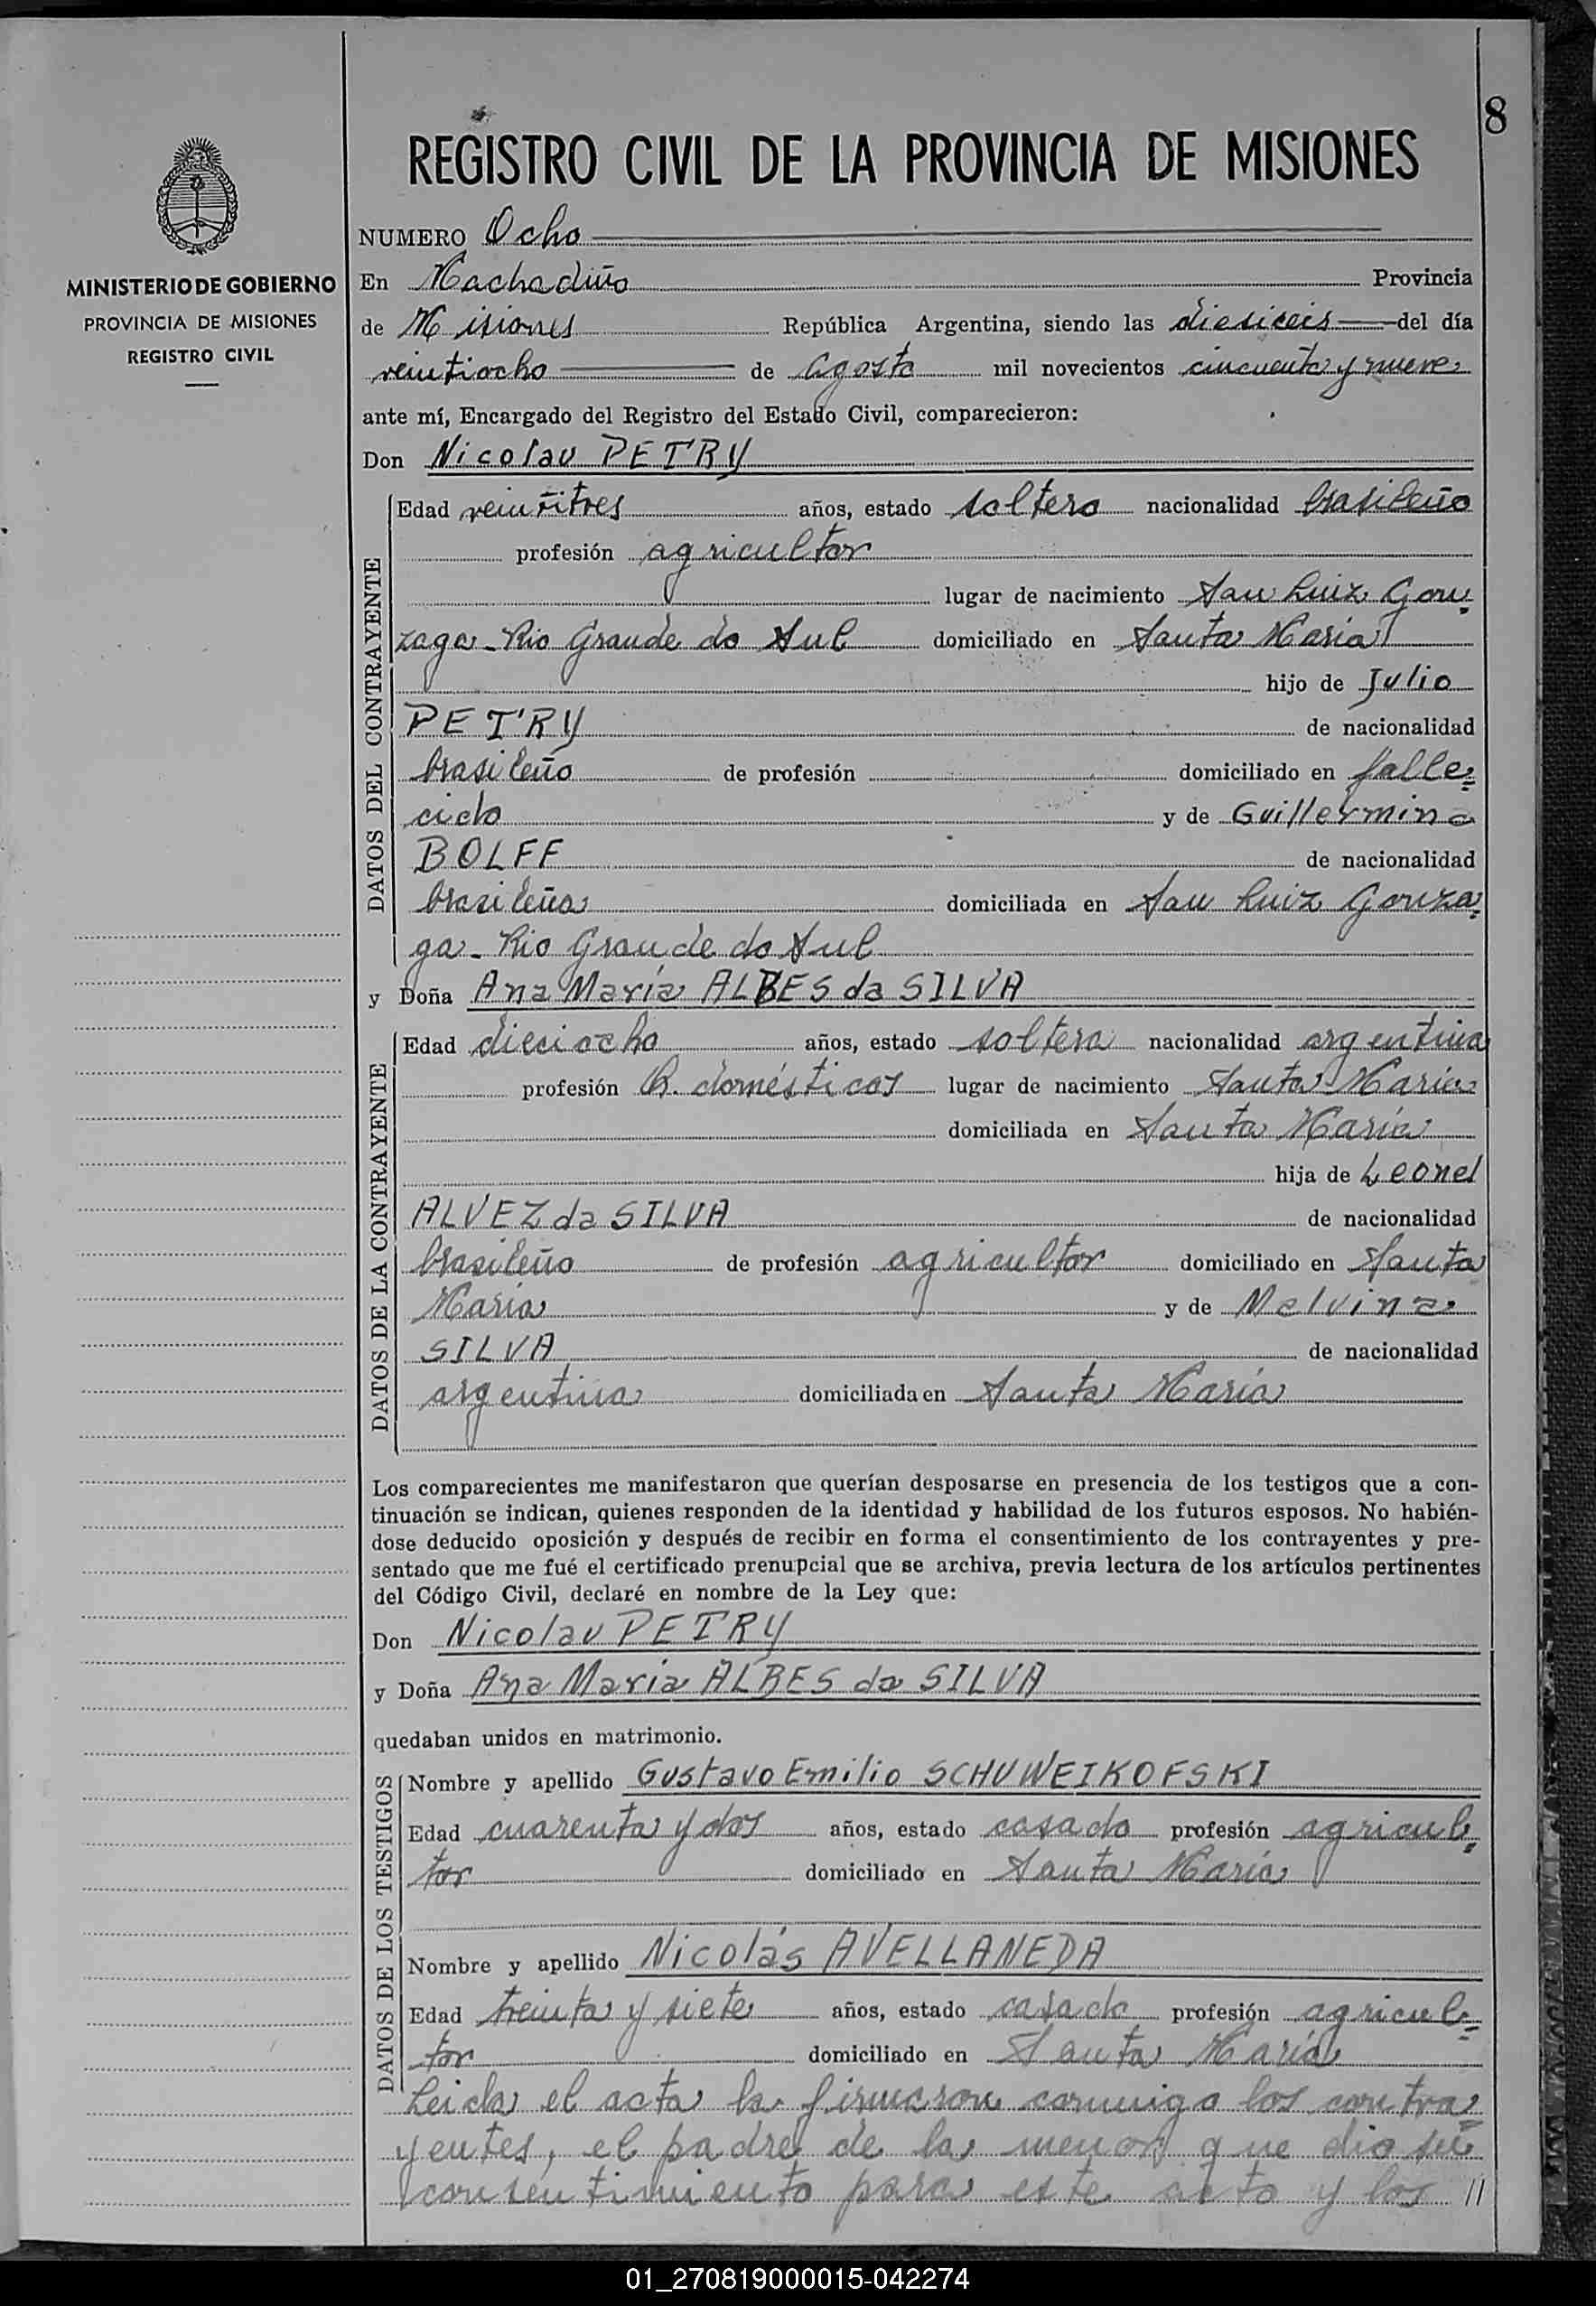 8
REGISTRO CIVIL DE LA PROVINCIA DE MISIONES
MINISTERIO DE GOBIERNO
PROVINCIA DE MISIONES
REGISTRO CIVIL
NUMERO Ocho
En Machadiño Provincia
de Misiones República Argentina, siendo las diesiceis del día
veintiocho de Agosto mil novecientos cincuenta y nueve
ante mí, Encargado del Registro del Estado Civil, comparecieron:
Don Nicolau PETRY
DATOS DEL CONTRAYENTE
Edad veintitres años, estado soltero nacionalidad brasileño
profesión agricultor
lugar de nacimiento San Luiz Gon-
zaga - Rio Grande do Sul domiciliado en Santa María
hijo de Julio
PETRY de nacionalidad
brasileño de profesión domiciliado en falle-
cido y de Guillermina
BOLFF de nacionalidad
brasileña domiciliada en San Luiz Gonza-
ga - Rio Grande do Sul
y Doña Ana María ALBES da SILVA
DATOS DE LA CONTRAYENTE
Edad dieciocho años, estado soltera nacionalidad argentina
profesión Q. domésticos lugar de nacimiento Santa María
domiciliada en Santa María
hija de Leonel
ALVEZ da SILVA de nacionalidad
brasileño de profesión agricultor domiciliado en Santa
María y de Malvina
SILVA de nacionalidad
argentina domiciliada en Santa María
Los comparecientes me manifestaron que querían desposarse en presencia de los testigos que a con-
tinuación se indican, quienes responden de la identidad y habilidad de los futuros esposos. No habién-
dose deducido oposición y después de recibir en forma el consentimiento de los contrayentes y pre-
sentado que me fué el certificado prenupcial que se archiva, previa lectura de los artículos pertinentes
del Código Civil, declaré en nombre de la Ley que:
Don Nicolau PETRY
y Doña Ana María ALBES da SILVA
quedaban unidos en matrimonio.
DATOS DE LOS TESTIGOS
Nombre y apellido Gustavo Emilio SCHUWEIKOFSKI
Edad cuarenta y dos años, estado casado profesión agricul-
tor domiciliado en Santa María
Nombre y apellido Nicolás AVELLANEDA
Edad treinta y siete años, estado casado profesión agricul-
tor domiciliado en Santa María
Leida el acta la firmaron conmigo los contra-
yentes, el padre de la menor que dio su
consentimiento para este acto y los //
01_270819000015-042274